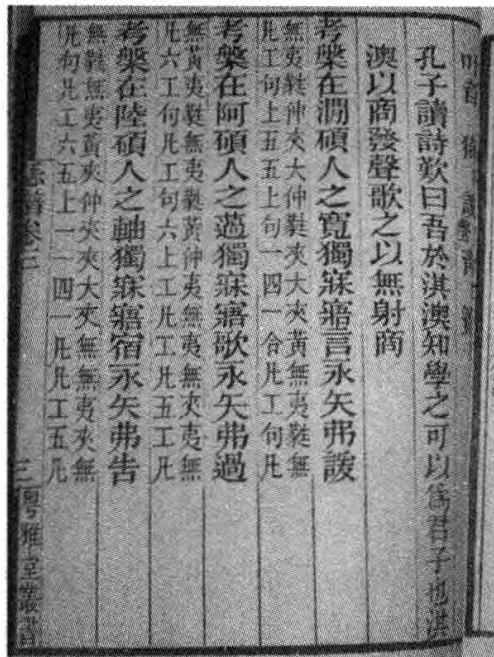 孔子讀詩歎曰吾於淇澳知學之可以爲君子也淇
澳以商發聲歌之以無射商
考槃在澗碩人之寬獨寐寤言永矢弗諼
凡工句上五五上句一四一合凡工句凡
考槃在阿碩人之薖獨寐寤歌永矢弗過
無黃夷㽔無夷㽔黃仲夷無夷無夾夷無
凡六工句凡工句六上工凡工凡五工凡
考槃在陸碩人之軸獨寐寤宿永矢弗告
無㽔無夷黃夾仲夾夾大夾無無夷夾無
凡句凡工六五上一一四一凡凡工五凡
譜卷三
三
粵雅堂叢書